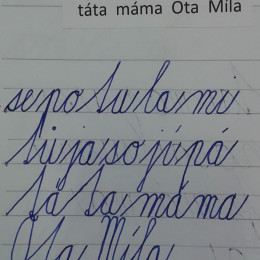 táta máma Ota Míla
se po tu la mi
tú ja so jú pá
tá ta má ma
Ota Míla